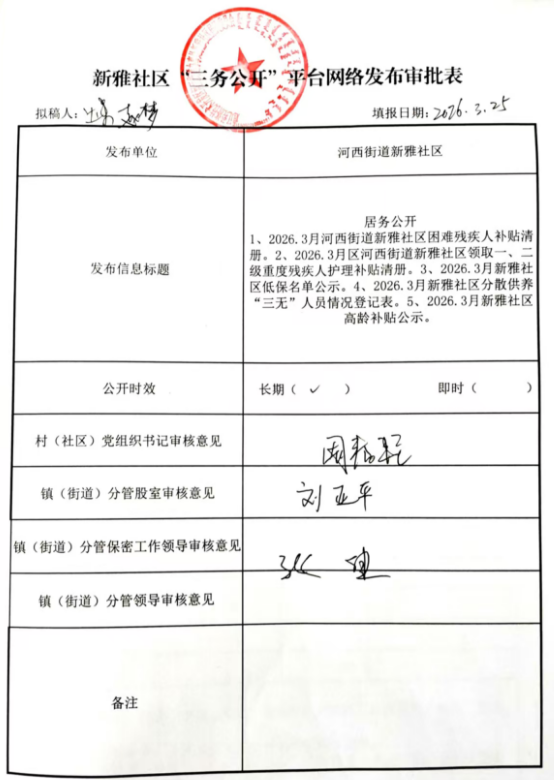 新雅社区“三务公开”平台网络发布审批表
拟稿人：
填报日期：2026.3.25
发布单位
河西街道新雅社区
发布信息标题
居务公开
1、2026.3月河西街道新雅社区困难残疾人补贴清
册。2、2026.3月区河西街道新雅社区领取一、二
级重度残疾人护理补贴清册。3、2026.3月新雅社
区低保名单公示。4、2026.3月新雅社区分散供养
“三无”人员情况登记表。5、2026.3月新雅社区
高龄补贴公示。
公开时效
长期（ ✓ ） 即时（ ）
村（社区）党组织书记审核意见
镇（街道）分管股室审核意见
刘亚平
镇（街道）分管保密工作领导审核意见
镇（街道）分管领导审核意见
备注